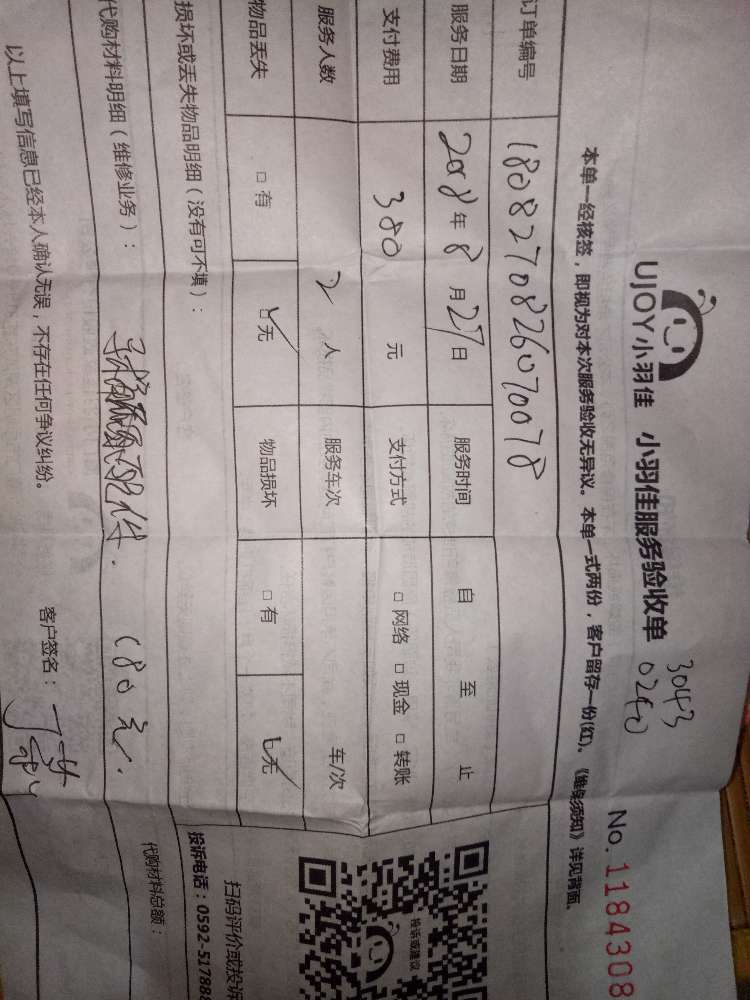 UJOY小羽佳 小羽佳服务验收单
3043
0240
No. 1184308
本单一经核签，即视为对本次服务验收无异议。本单一式两份，客户留存一份(红)。《维修须知》详见背面。
订单编号 1808270826070078
服务日期 2018年8月27日 服务时间 自 至 止
支付费用 380 元 支付方式 □ 网络 □ 现金 □ 转账
服务人数 2 人 服务车次 车/次
物品丢失 □ 有 □ 无 物品损坏 □ 有 □ 无
损坏或丢失物品明细（没有可不填）：
代购材料明细（维修业务）： 配件. 180元.
代购材料总额：
以上填写信息已经本人确认无误，不存在任何争议纠纷。 客户签名：
投诉或建议
扫码评价或投诉
投诉电话：0592-517888